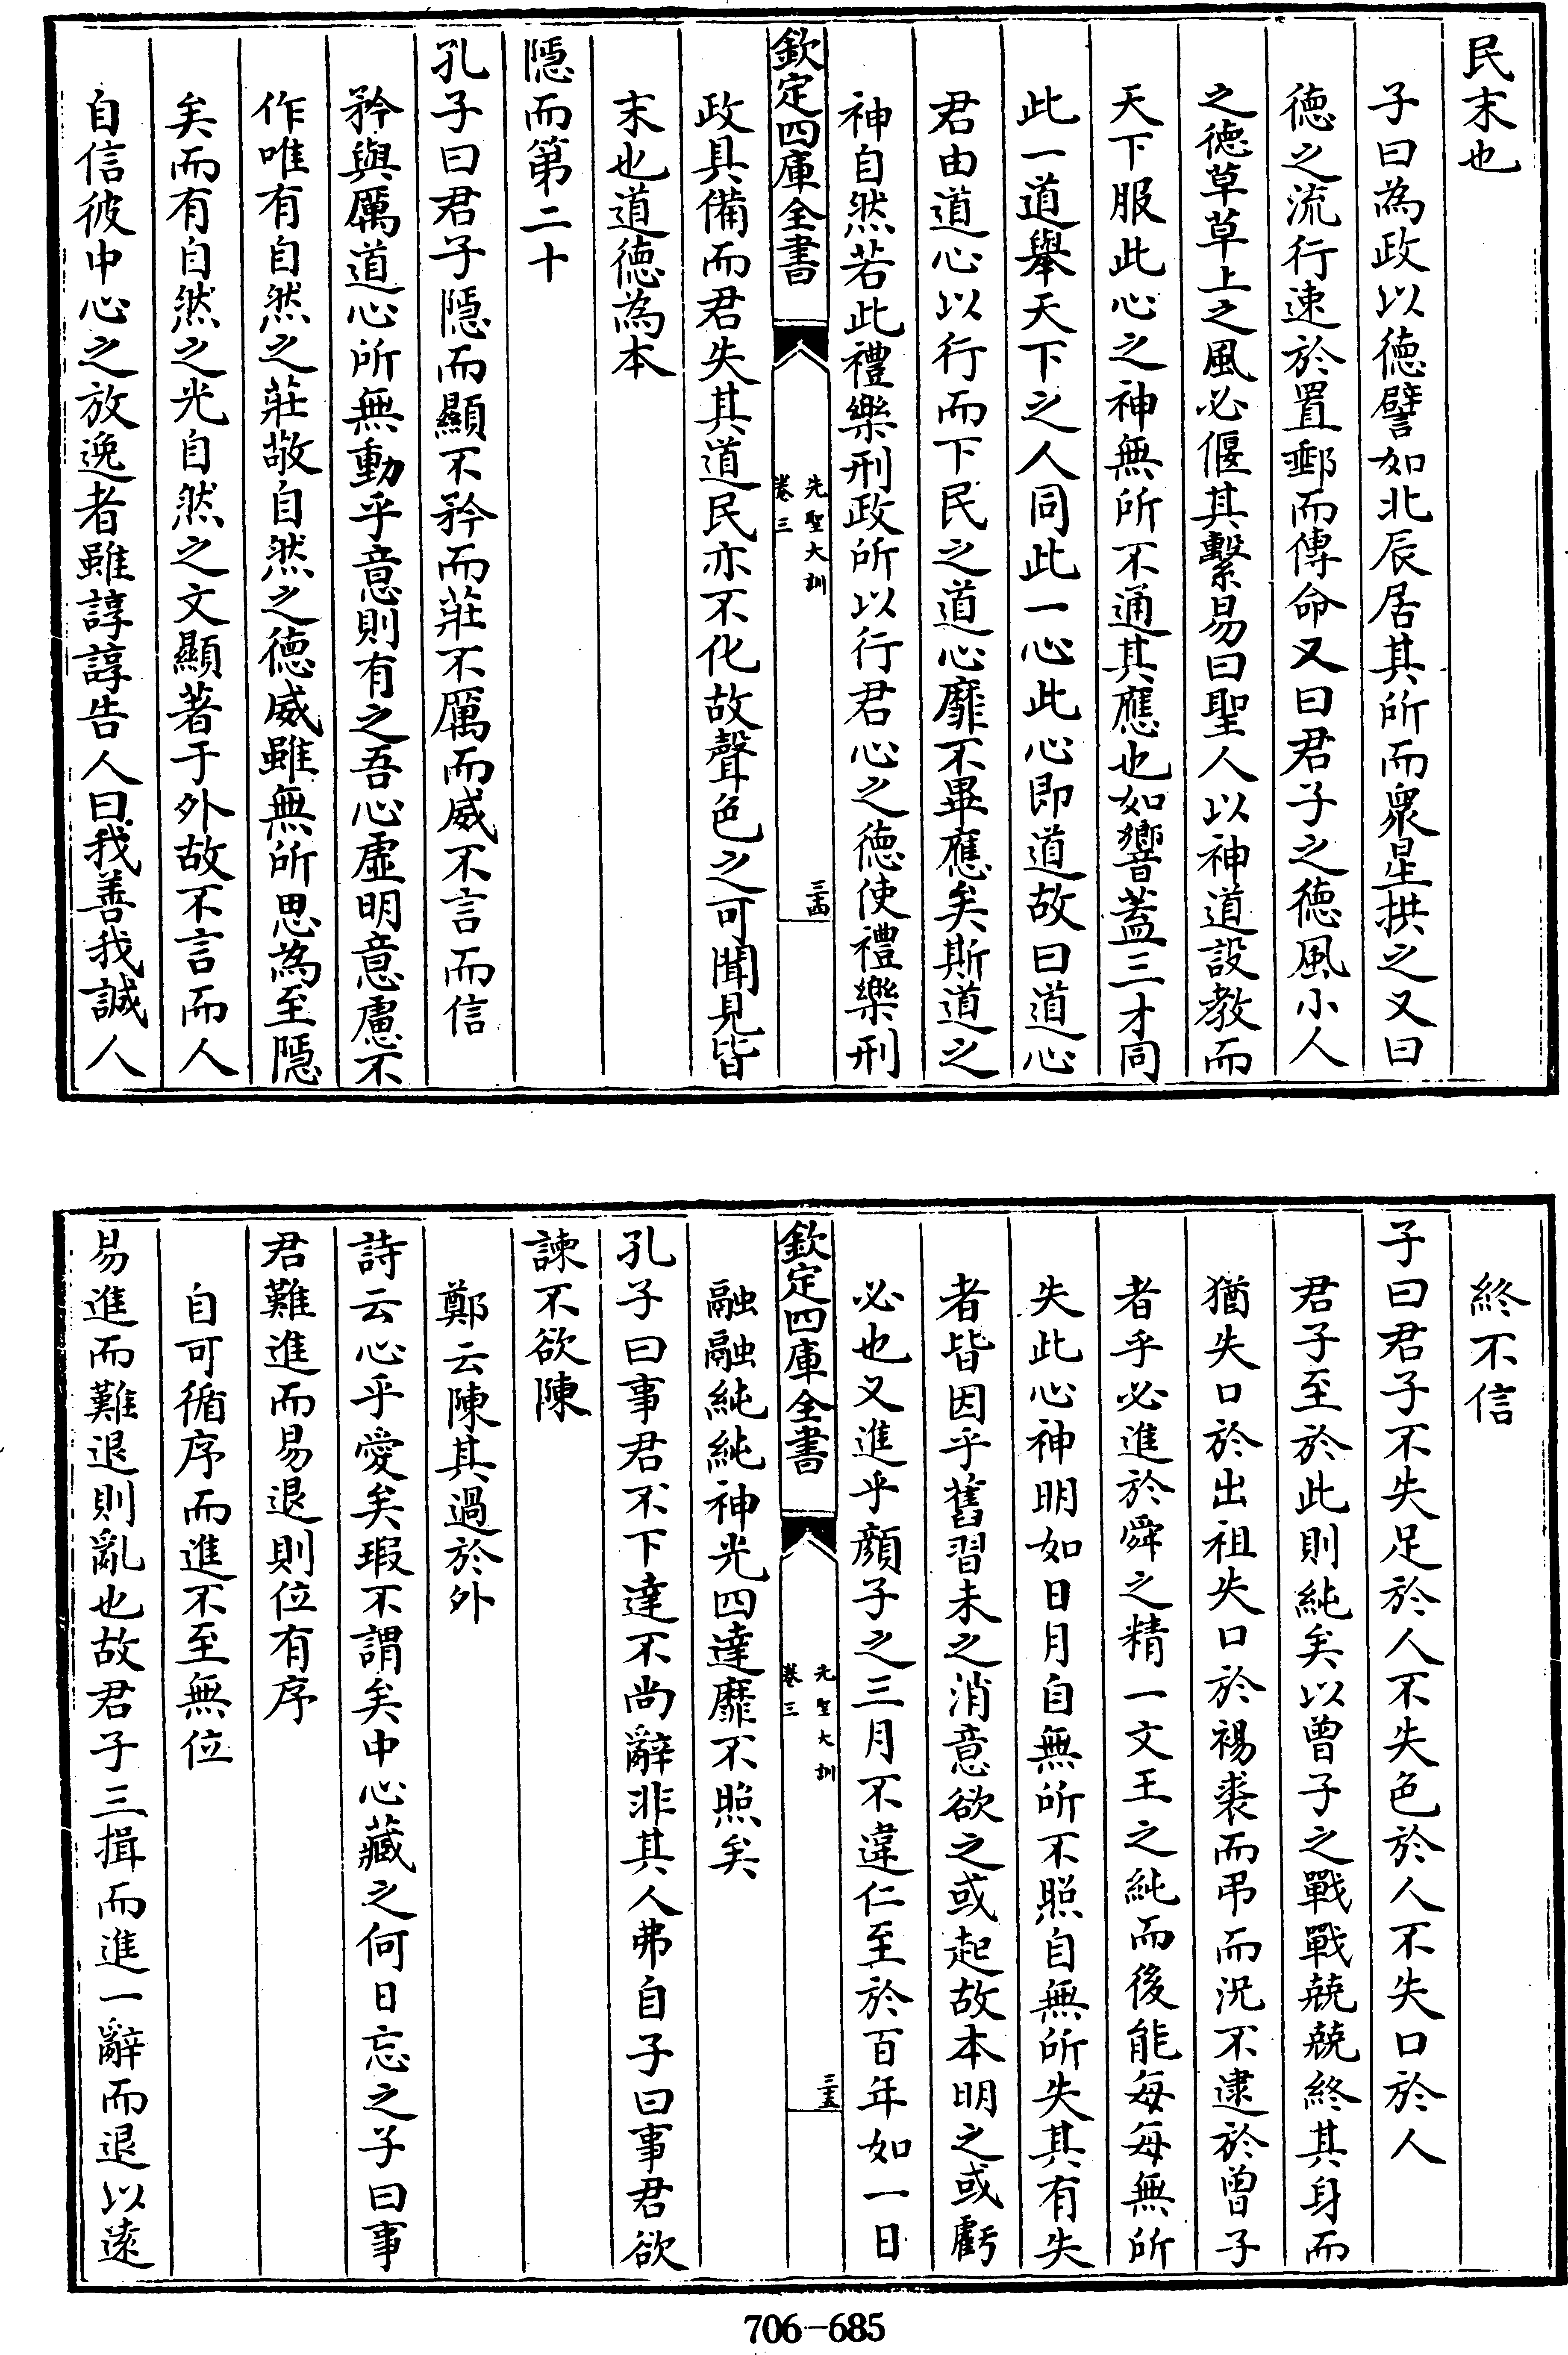 民末也
子曰為政以德譬如北辰居其所而衆星拱之又曰
德之流行速於置郵而傳命又曰君子之德風小人
之德草草上之風必偃其繫易曰聖人以神道設教而
天下服此心之神無所不通其應也如響蓋三才同
此一道舉天下之人同此一心此心即道故曰道心
君由道心以行而下民之道心靡不畢應矣斯道之
神自然若此禮樂刑政所以行君心之德使禮樂刑
欽定四庫全書
先聖大訓
卷三
三十四
政具備而君失其道民亦不化故聲色之可聞見皆
末也道德為本
隱而第二十
孔子曰君子隱而顯不矜而莊不厲而威不言而信
矜與厲道心所無動乎意則有之吾心虛明意慮不
作唯有自然之莊敬自然之德威雖無所思為至隱
矣而有自然之光自然之文顯著于外故不言而人
自信彼中心之放逸者雖諄諄告人曰我善我誠人
終不信
子曰君子不失足於人不失色於人不失口於人
君子至於此則純矣以曾子之戰戰兢兢終其身而
猶失口於出祖失口於裼裘而弔而況不逮於曾子
者乎必進於舜之精一文王之純而後能每每無所
失此心神明如日月自無所不照自無所失其有失
者皆因乎舊習未之消意欲之或起故本明之或虧
必也又進乎顏子之三月不違仁至於百年如一日
欽定四庫全書
先聖大訓
卷三
三十五
融融純純神光四達靡不照矣
孔子曰事君不下達不尚辭非其人弗自子曰事君欲
諫不欲陳
鄭云陳其過於外
詩云心乎愛矣瑕不謂矣中心藏之何日忘之子曰事
君難進而易退則位有序
自可循序而進不至無位
易進而難退則亂也故君子三揖而進一辭而退以遠
706-685